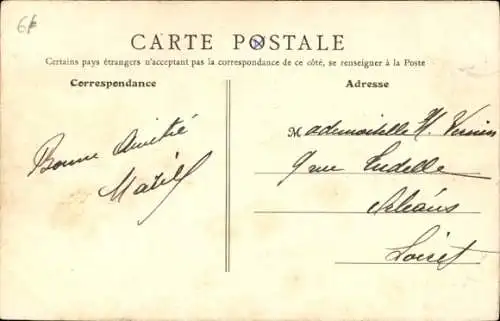 6f
CARTE POSTALE
Certains pays étrangers n'acceptant pas la correspondance de ce côté, se renseigner à la Poste
Correspondance
Adresse
Bonne Amitié
Mademoiselle H. Vernien
9 rue Eudelle
Orléans
Loiret